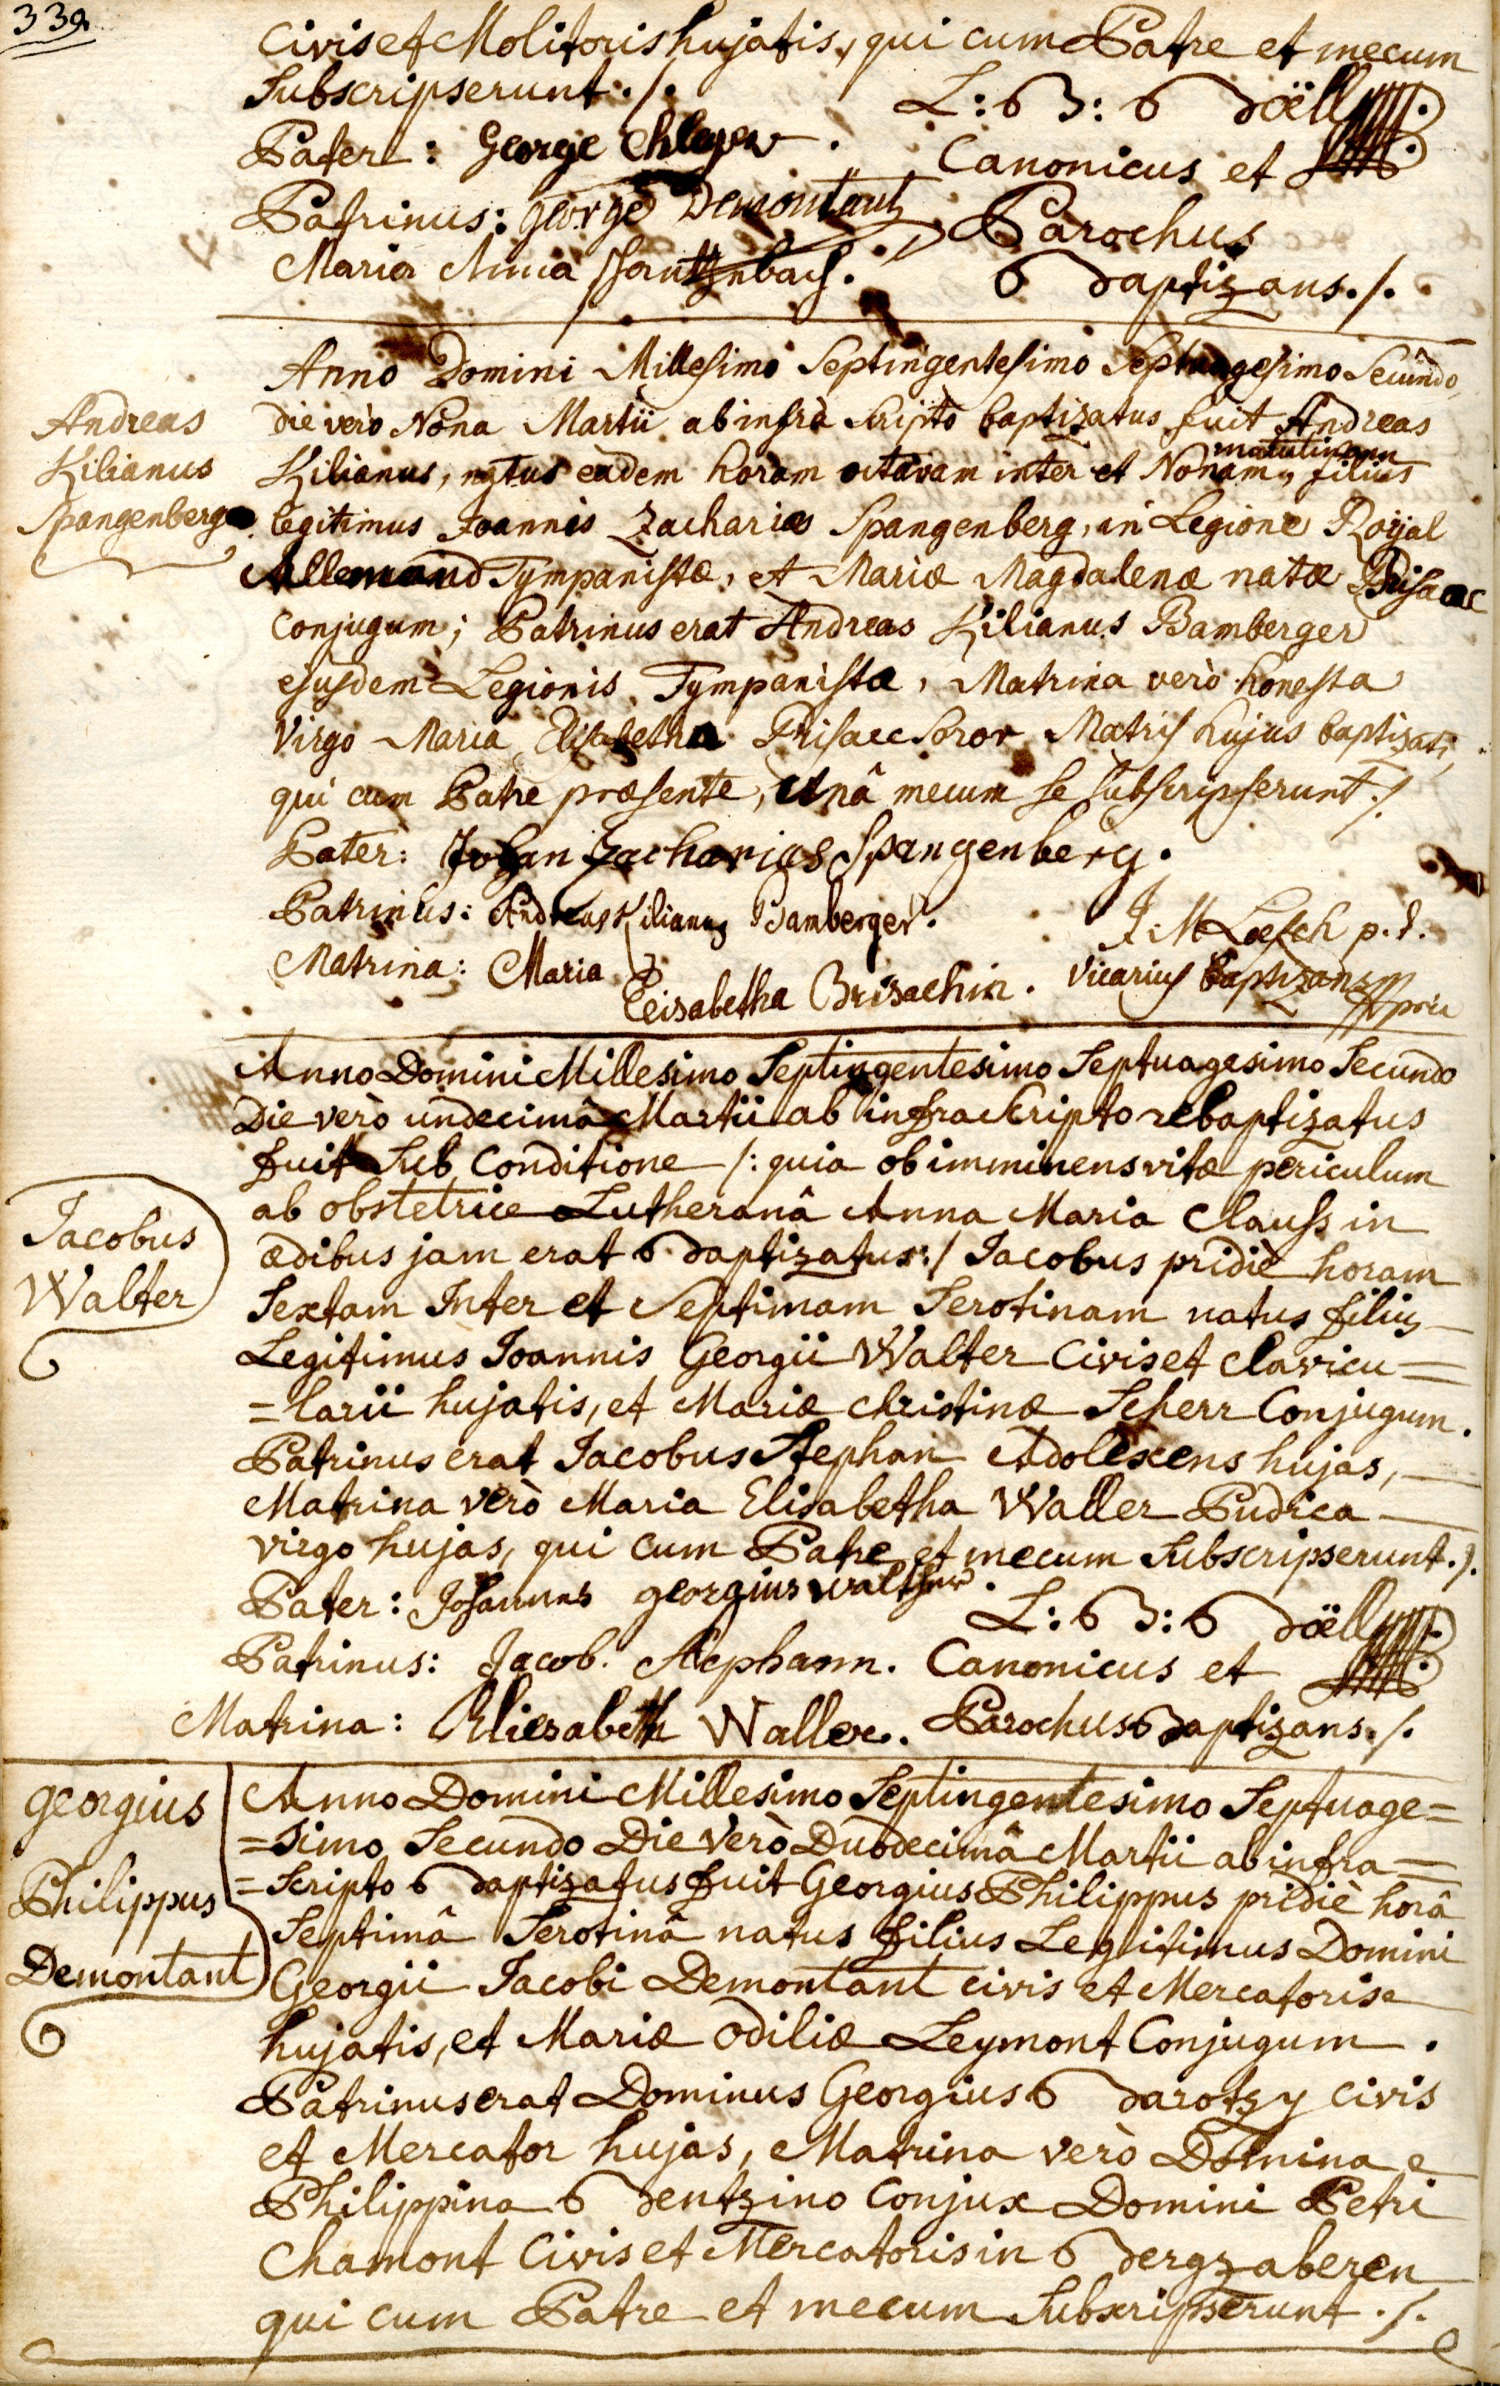 339.
Civis et Molitoris hujatis, qui cum Patre et mecum
Subscripserunt ./.
L: B: Boëll
Pater: George
Canonicus et
Patrinus: George Demontant
Parochus
Maria Anna
Baptizans ./.
Anno Domini Millesimo Septingentesimo Septuagesimo Secundo,
Andreas
Kilianus
Spangenberg
die verò Nona Martii ab infrà scripto baptizatus fuit Andreas
Kilianus, natus eâdem horam octavam inter et Nonam matutinam, filius
legitimus Joannis Zachariæ Spangenberg, in Legione Roÿal
Allemand Tympanistæ, et Mariæ Magdalenæ natæ Brisacc
Conjugum; Patrinus erat Andreas Kilianus Bamberger
ejusdem Legionis Tympanista, Matrina verò honesta
Virgo Maria Elisabetha Prisacc Soror Matris hujus baptizati,
qui cum Patre præsente, unâ mecum se subscripserunt ./.
Pater: Johan Zacharias Spangenberg.
Patrinus: Andreas Kilianus Bamberger.
J. M. Loesch p. t.
Matrina: Maria
Elisabetha Brisachin.
Vicarius baptizans mppria
Anno Domini Millesimo Septingentesimo Septuagesimo Secundo
Die verò undecimâ Martii ab infra Scripto rebaptizatus
fuit Sub Conditione /: quia ob imminens vitæ periculum
ab obstetrice Lutheranâ Anna Maria Clauss in
Jacobus
Walter
ædibus jam erat Baptizatus :/ Jacobus pridiè horam
Sextam Inter et Septimam Serotinam natus filius
Legitimus Joannis Georgii Walter Civis et Clavicu=
=larii hujatis, et Mariæ Christinæ Scherr Conjugum.
Patrinus erat Jacobus Stephan Adolescens hujas,
Matrina verò Maria Elisabetha Waller Pudica
virgo hujas, qui cum Patre et mecum Subscripserunt ./.
Pater: Johannes georgius walther.
L: B: Boëll
Patrinus: Jacob. Stephann.
Canonicus et
Matrina: Eliesabeth Waller.
Parochus Baptizans ./.
georgius
Philippus
Demontant
Anno Domini Millesimo Septingentesimo Septuage=
=simo Secundo Die Verò Duodecimâ Martii ab infra=
=Scripto Baptizatus fuit Georgius Philippus pridiè horâ
Septimâ Serotinâ natus filius Legitimus Domini
Georgii Jacobi Demontant civis et Mercatoris
hujatis, et Mariæ Odiliæ Leymont Conjugum.
Patrinus erat Dominus Georgius Barotzy civis
et Mercator hujas, Matrina verò Domina
Philippina Bentzino Conjux Domini Petri
Chamont Civis et Mercatoris in Bergzaberen
qui cum Patre et mecum Subscripserunt ./.